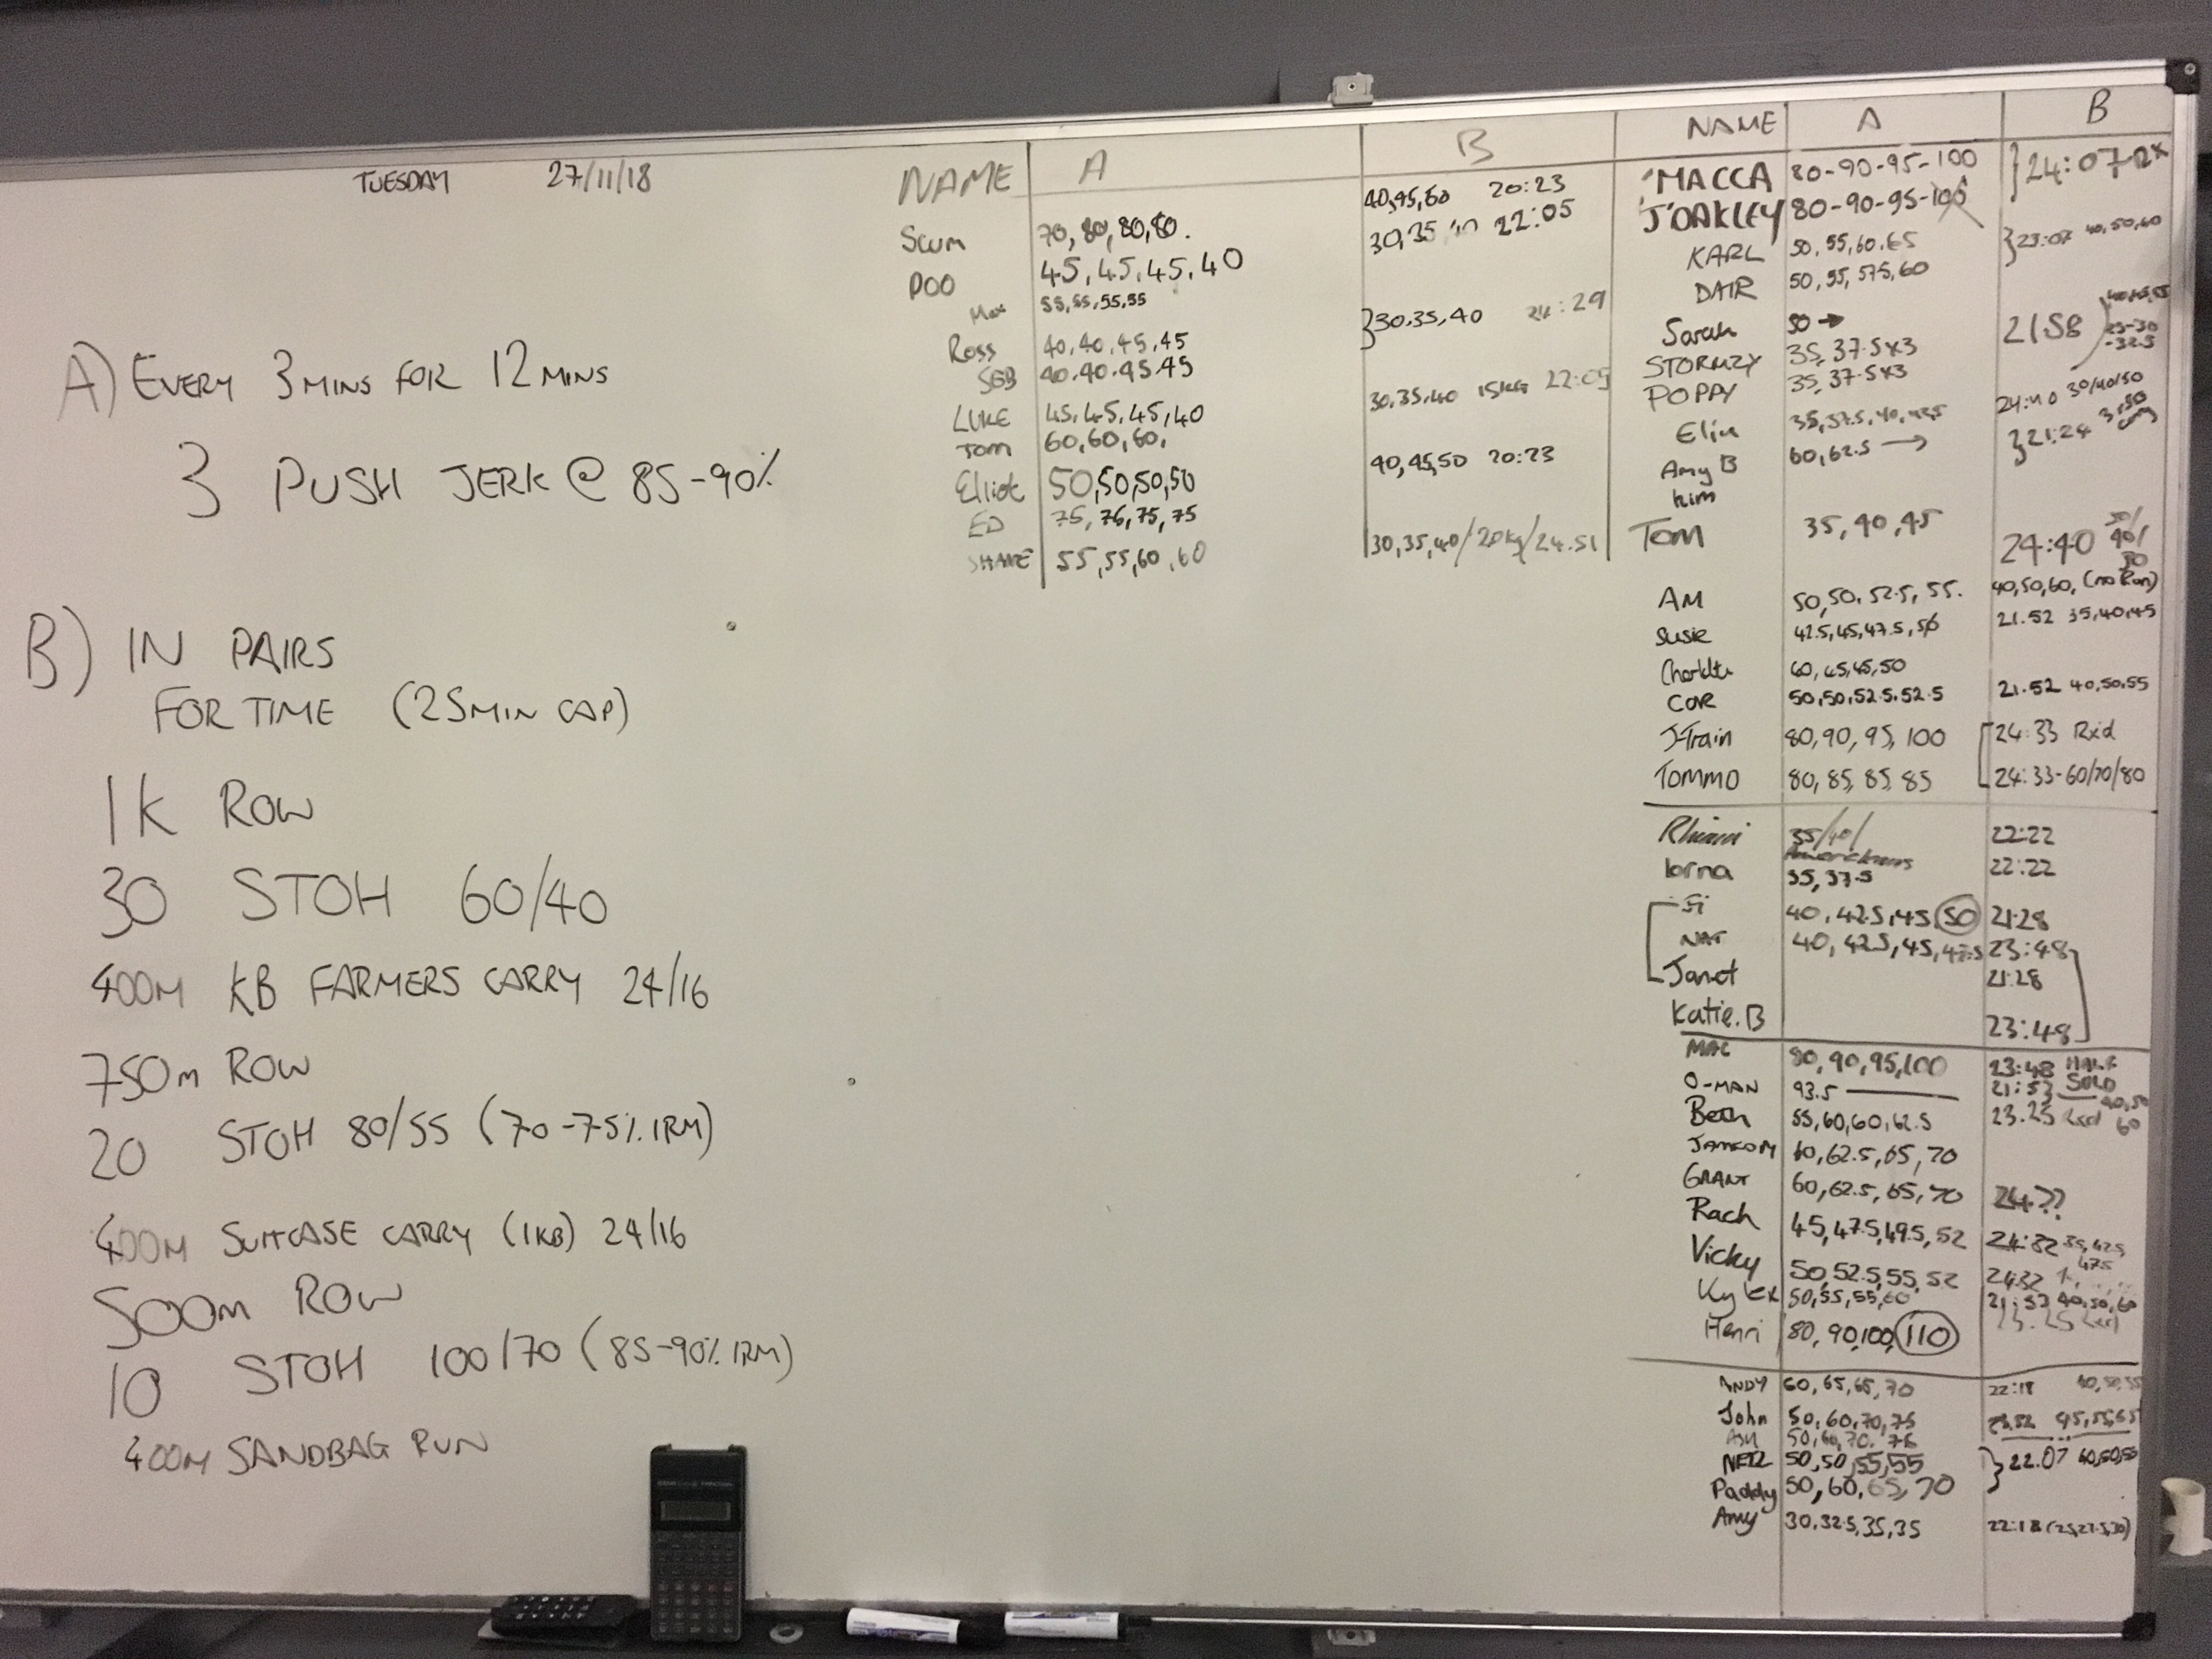 TUESDAY 27/11/18
A) EVERY 3 MINS FOR 12 MINS
3 PUSH JERK @ 85-90%
B) IN PAIRS
FOR TIME (25MIN CAP)
1K ROW
30 STOH 60/40
400M KB FARMERS CARRY 24/16
750m ROW
20 STOH 80/55 (70-75% 1RM)
400M SUITCASE CARRY (1KB) 24/16
500m ROW
10 STOH 100/70 (85-90% 1RM)
400M SANDBAG RUN
NAME A B
Scum 70, 80, 80, 80. 20:23
POO 45, 45, 45, 40 30,35 22:05
Max 55,55,55,55
Ross 40,40,45,45 }30,35,40 :29
SEB 40.40.45.45
LUKE 45,45,45,40 30,35,40 15KG
Tom 60,60,60,
Elliot 50,50,50,50 40,45,50 20:23
ED 75, 75, 75
SHANE 55,55,60,60 30,35,40/20kg/24.51
NAME A B
'MACCA 80-90-95-100 }24:07 Rx
J'OAKLEY 80-90-95-100
KARL 50,55,60,65 }23:07 40,50,60
50, 55, 57.5, 60
Sarah 50→ 2158
STORMZY 35, 37.5x3 25-30-32.5
POPPY 35, 37.5x3
24:40 30/40/50
Amy B 60,62.5 → }21:24
Kim
Tom 35, 40, 45 24:40
AM 50,50,52.5, 55. 40,50,60, (no Run)
Susie 42.5,45,47.5,50 21.52 35,40,45
50
COR 50,50,52.5,52.5 21.52 40,50,55
J-Train 80,90,95,100 24:33 Rxd
TOMMO 80,85,85,85 24:33-60/70/80
35/40/ 22:22
lorna 35,37.5 22:22
40,42.5,45,50 21:28
NAT 40, 42.5, 45, 47.5 23:48
Janet 21:28
Katie.B 23:48
MAC 80,90,95,100 23:48 HALF
O-MAN 93.5 21:53 SOLO
Beth 55,60,60,62.5 23.25
60,62.5,65,70
GRANT 60,62.5,65,70 24??
Rach 45,47.5,49.5,52 24:32
Vicky 50,52.5,55,52 24:32
50,55,55,60 40,50,60
Henri 80,90,100,110 23.25
ANDY 60,65,65,70 22:18
John 50,60,70,75 45,55,65
ASH 50,60,70,75
50,50,55,55 }22.07
Paddy 50,60,65,70
Amy 30,32.5,35,35 22:18 (25,27.5,30)